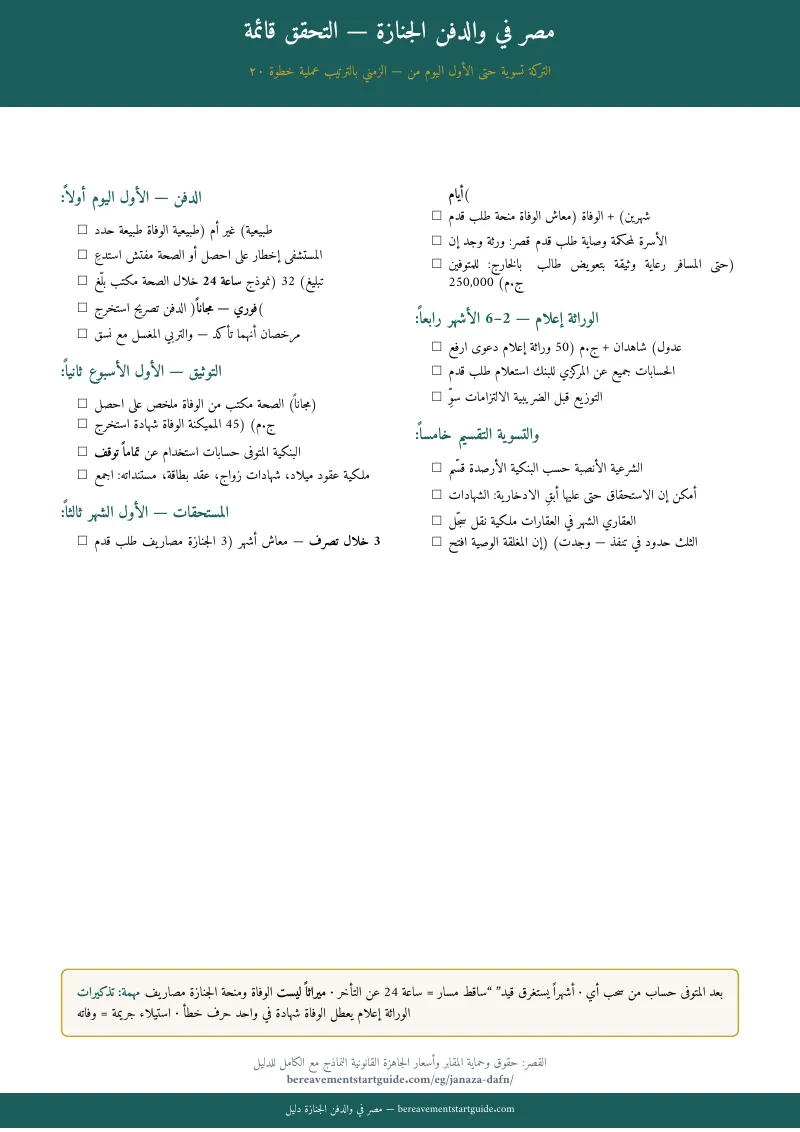 مصر في والدفن الجنازة — التحقق قائمة
التركة تسوية حتى الأول اليوم من — الزمني بالترتيب عملية خطوة ٢٠
الدفن — الأول اليوم أولاً:
طبيعية) غير أم (طبيعية الوفاة طبيعة حدد ☐
المستشفى إخطار على احصل أو الصحة مفتش استدعِ ☐
تبليغ) 32 (نموذج ساعة 24 خلال الصحة مكتب بلّغ ☐
(فوري — مجاناً) الدفن تصريح استخرج ☐
مرخصان أنهما تأكد — والتربي المغسل مع نسق ☐
التوثيق — الأول الأسبوع ثانياً:
(مجاناً) الصحة مكتب من الوفاة ملخص على احصل ☐
ج.م) (45 المميكنة الوفاة شهادة استخرج ☐
البنكية المتوفى حسابات استخدام عن تماماً توقف ☐
ملكية عقود ميلاد، شهادات زواج، عقد بطاقة، مستنداته: اجمع ☐
المستحقات — الأول الشهر ثالثاً:
3 خلال تصرف — معاش أشهر (3 الجنازة مصاريف طلب قدم ☐
(أيام
شهرين) + الوفاة (معاش الوفاة منحة طلب قدم ☐
الأسرة لمحكمة وصاية طلب قدم قصر: ورثة وجد إن ☐
(حتى المسافر رعاية وثيقة بتعويض طالب بالخارج: للمتوفين ☐
ج.م) 250,000
الوراثة إعلام — 2–6 الأشهر رابعاً:
عدول) شاهدان + ج.م (50 وراثة إعلام دعوى ارفع ☐
الحسابات جميع عن المركزي للبنك استعلام طلب قدم ☐
التوزيع قبل الضريبية الالتزامات سوِّ ☐
والتسوية التقسيم خامساً:
الشرعية الأنصبة حسب البنكية الأرصدة قسّم ☐
أمكن إن الاستحقاق حتى عليها أبقِ الادخارية: الشهادات ☐
العقاري الشهر في العقارات ملكية نقل سجّل ☐
الثلث حدود في تنفذ — وجدت) (إن المغلقة الوصية افتح ☐
بعد المتوفى حساب من سحب أي · أشهراً يستغرق قيد” “ساقط مسار = ساعة 24 عن التأخر · ميراثاً ليست الوفاة ومنحة الجنازة مصاريف مهمة: تذكيرات
الوراثة إعلام يعطل الوفاة شهادة في واحد حرف خطأ · استيلاء جريمة = وفاته
القصر: حقوق وحماية المقابر وأسعار الجاهزة القانونية النماذج مع الكامل للدليل
bereavementstartguide.com/eg/janaza-dafn/
مصر في والدفن الجنازة دليل — bereavementstartguide.com